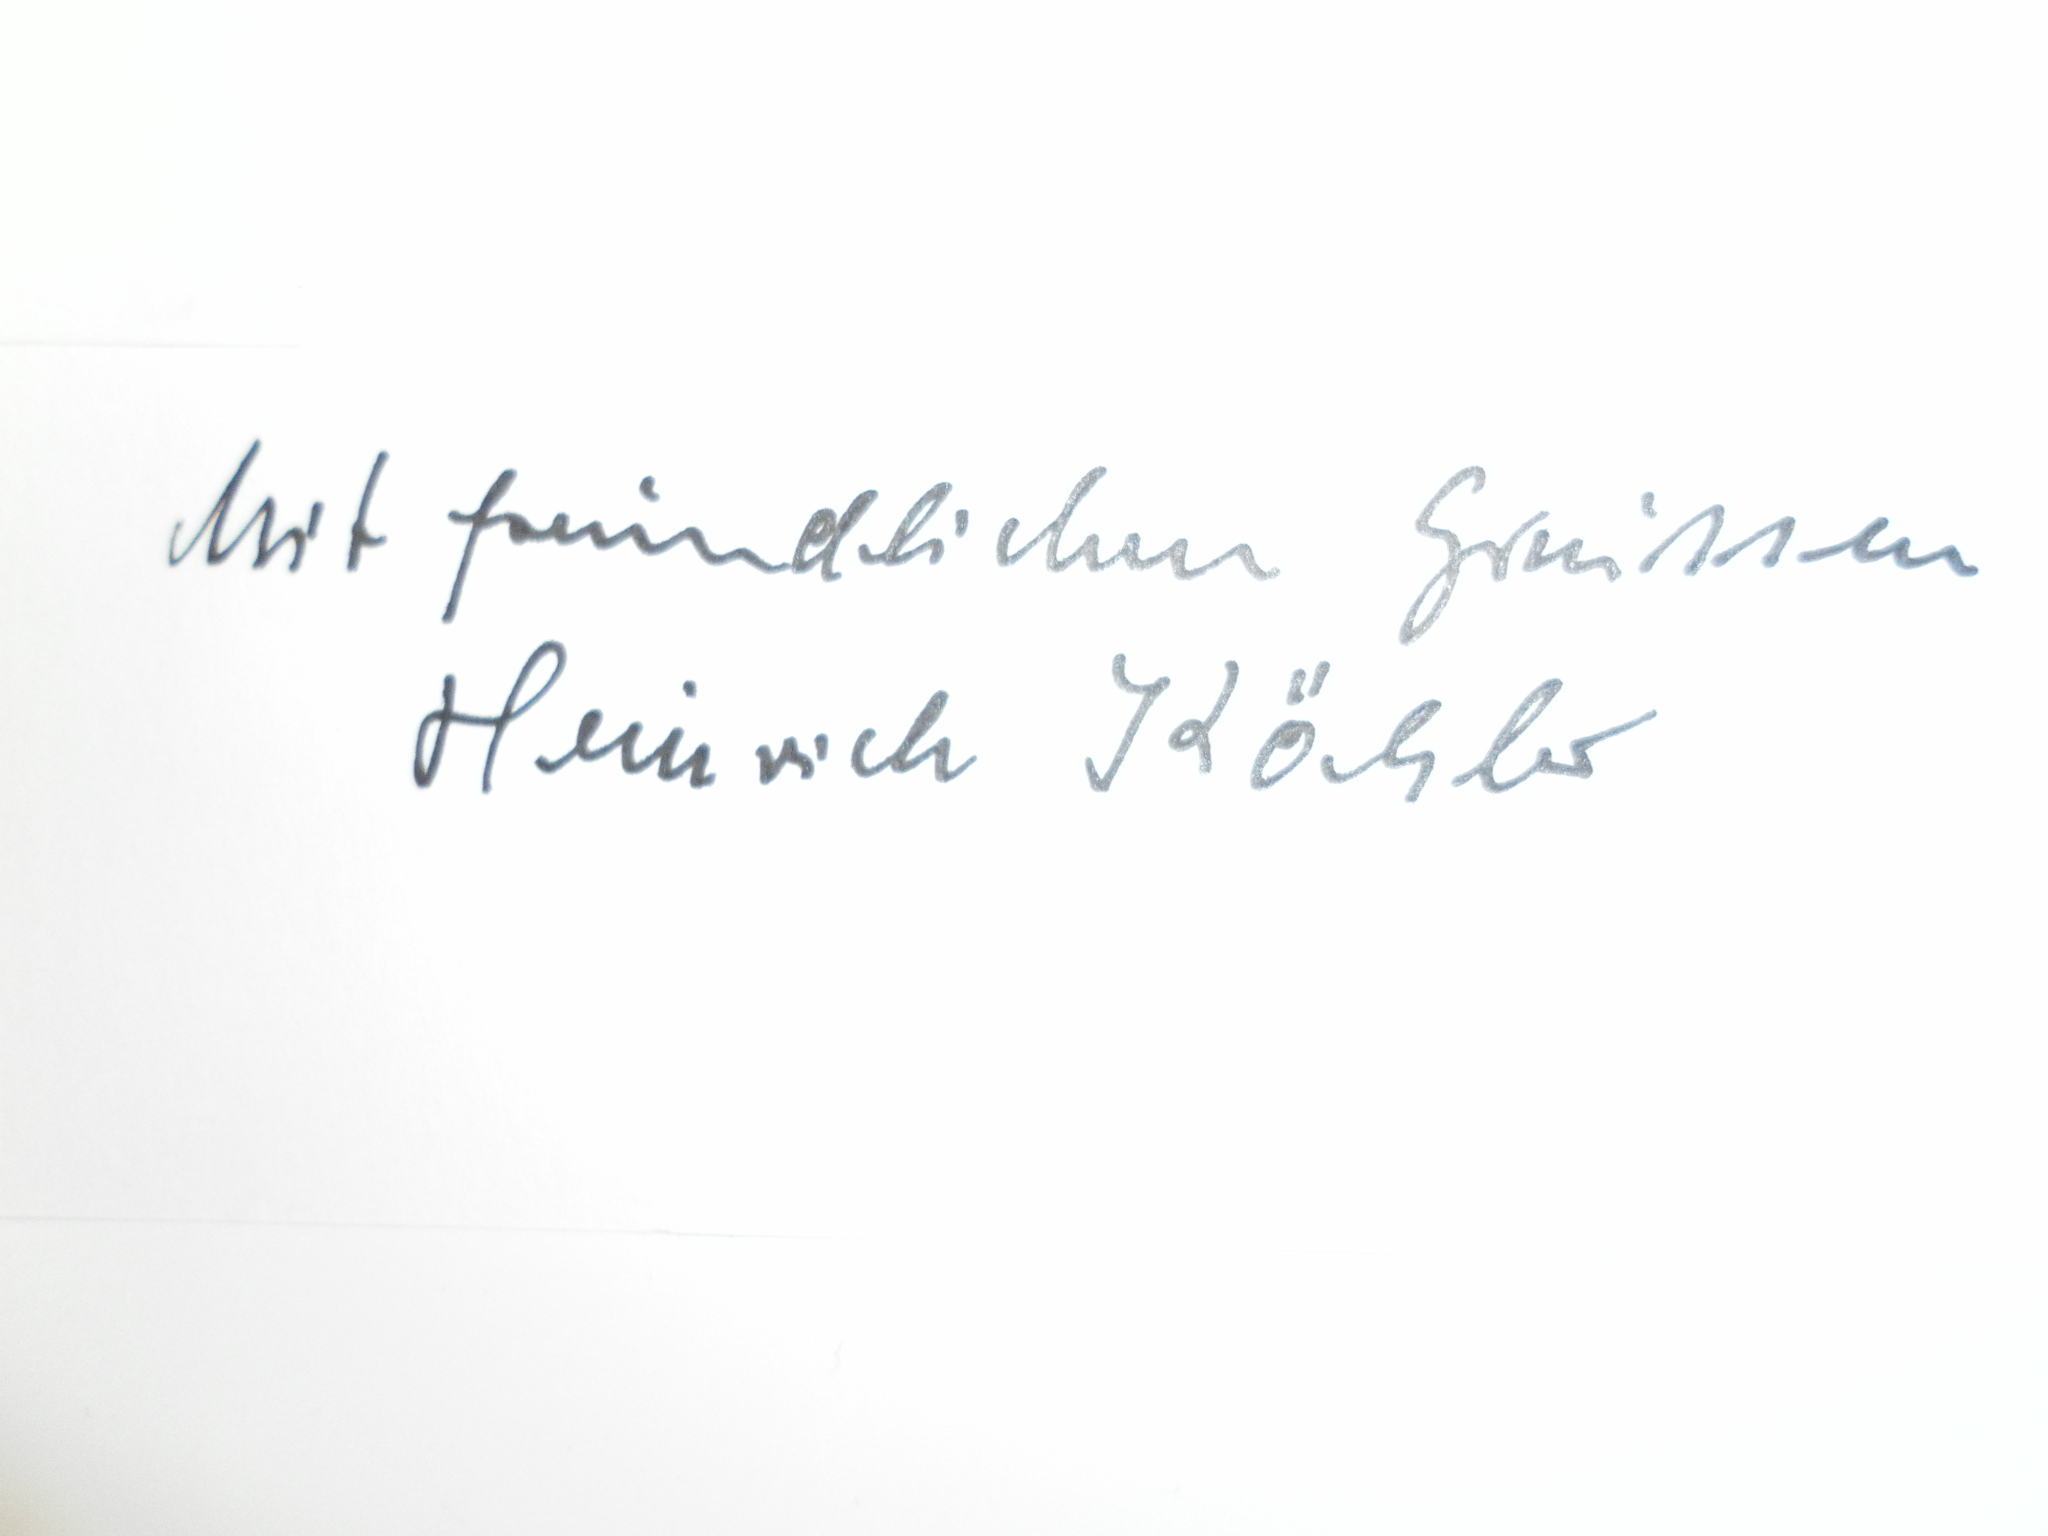 Mit freundlichen Grüssen
Heinrich Köhler